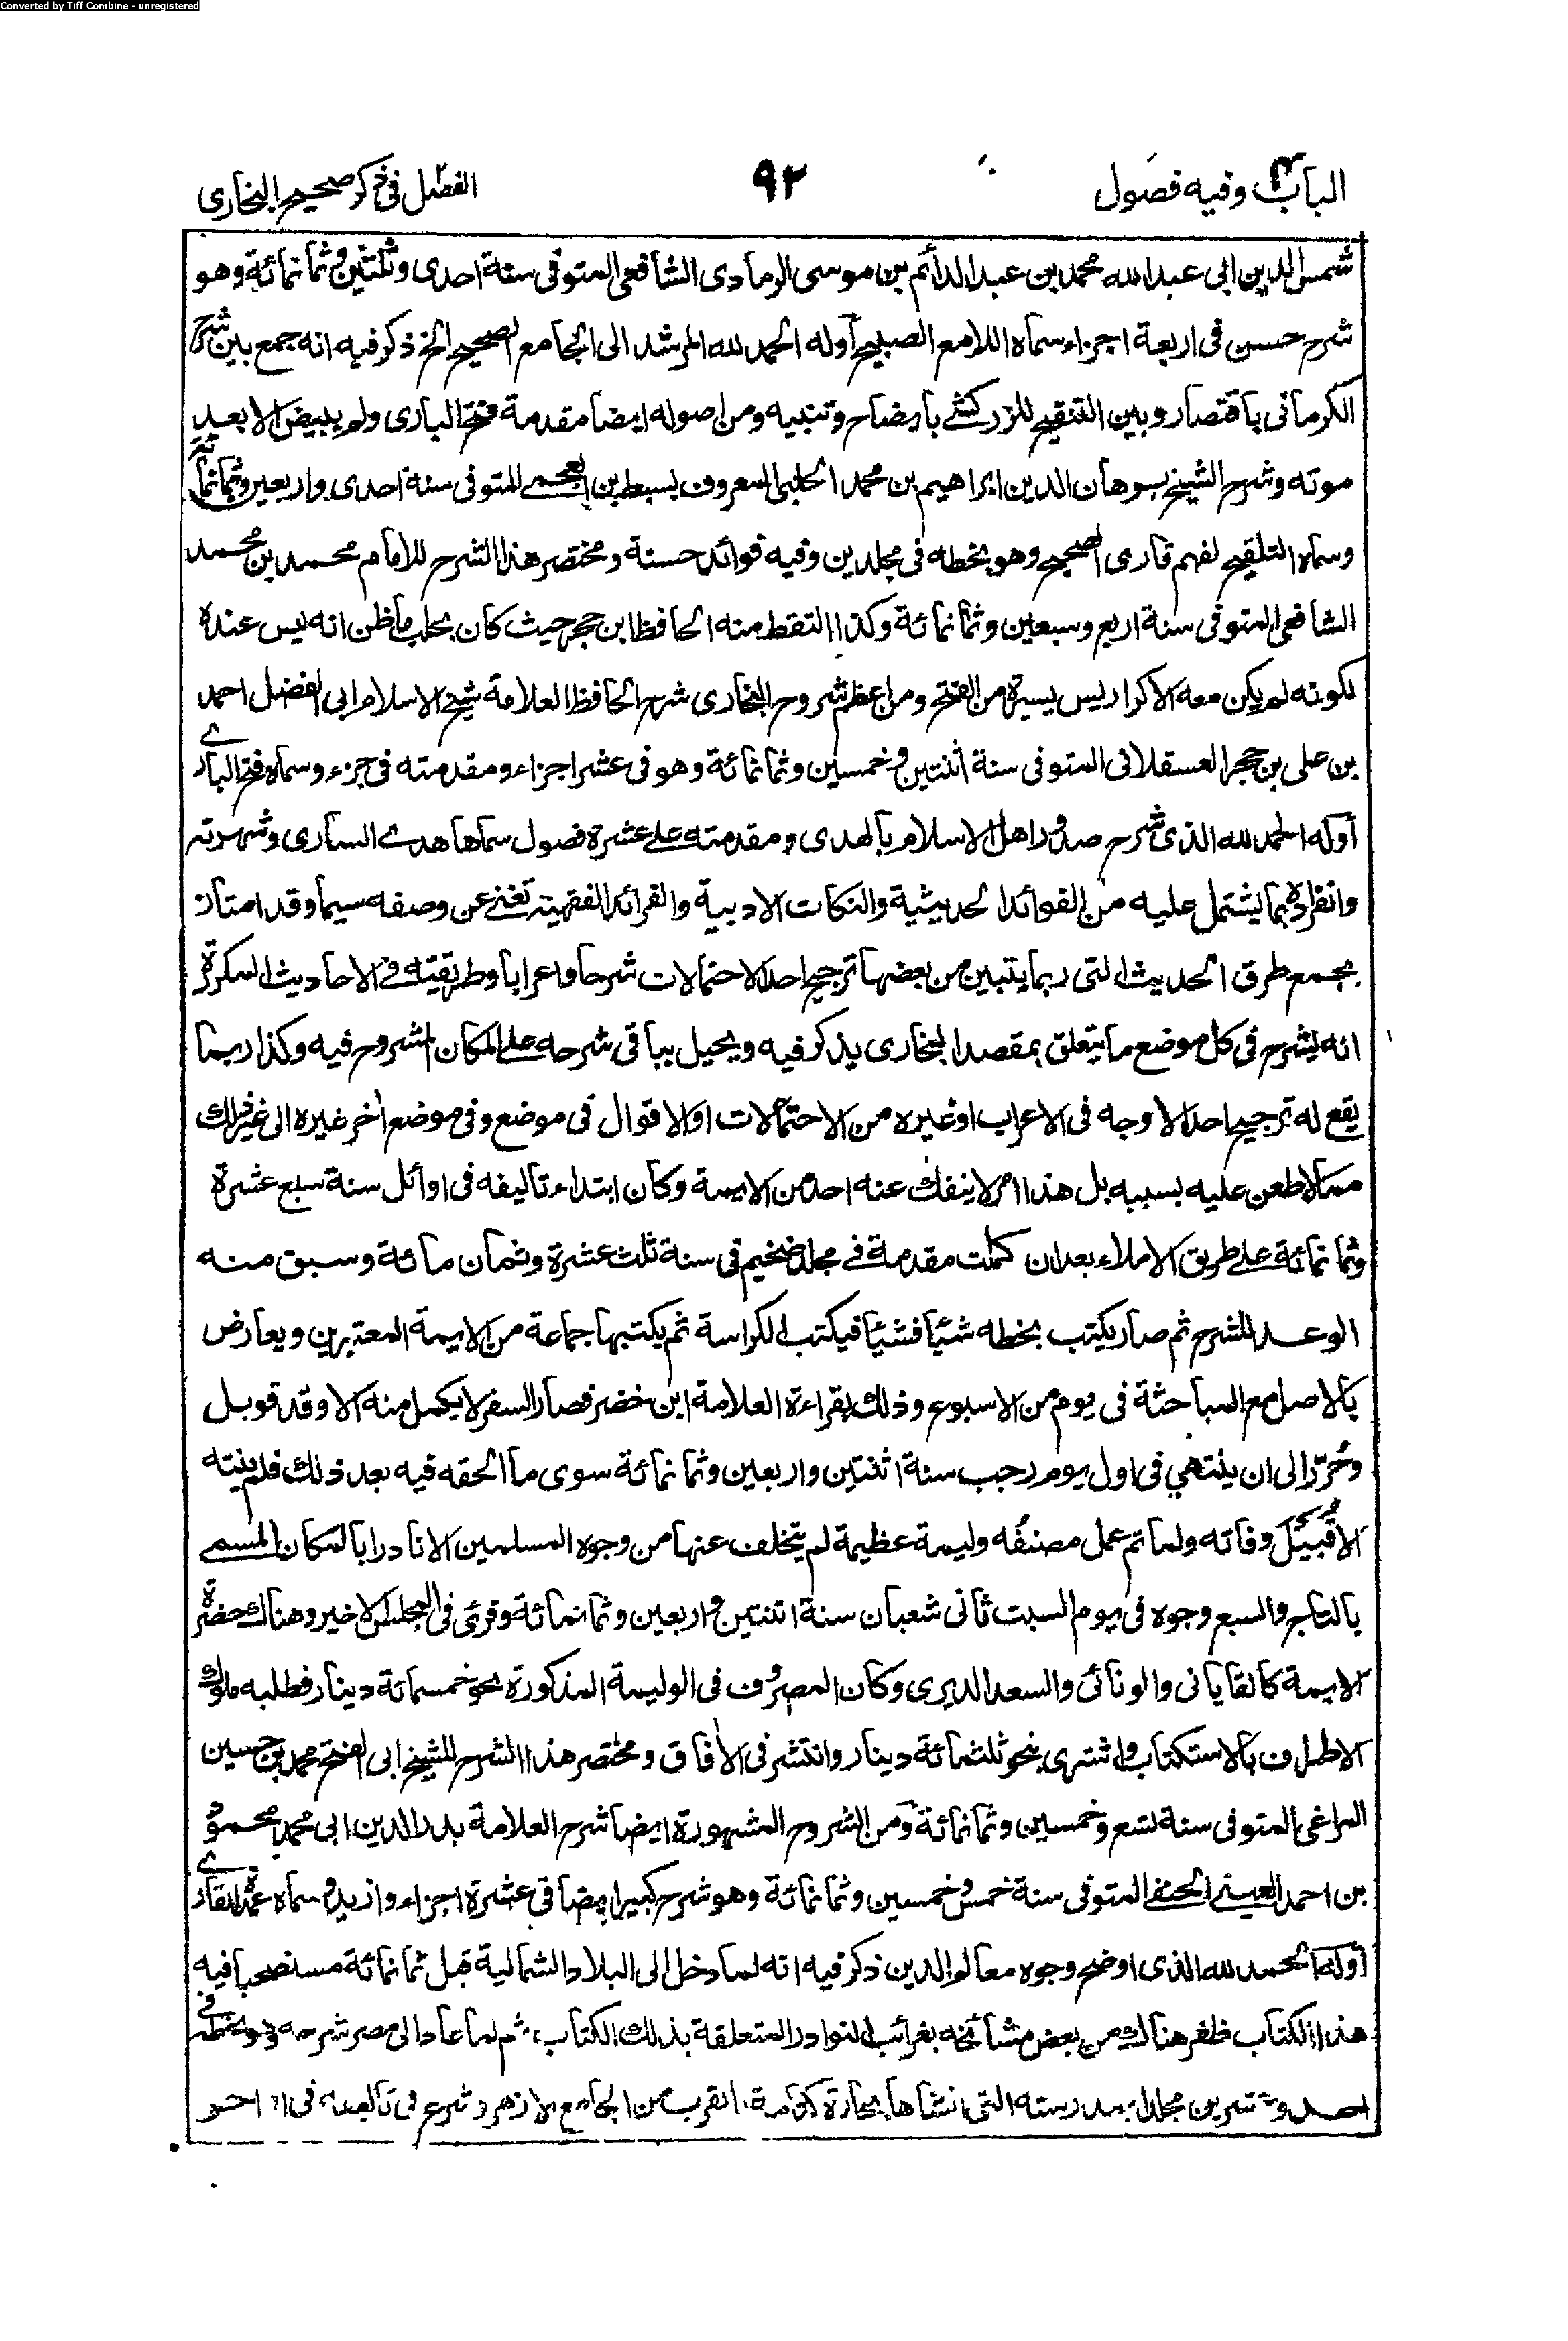 Converted by Tiff Combine - unregistered
الباب وفيه فصول
٩٢
الفصل في ذكر صحيح البخارى
شمس الدين ابى عبد الله محمد بن عبد الدائم بن موسى الرمادى الشافعى المتوفى سنة احدى وثلثين وثمانمائة وهو
شرح حسن فى اربعة اجزاء سماه اللامع الصبيح أوله الحمد لله المرشد الى الجامع الصحيح الخ ذكر فيه انه جمع بين شرح
الكرمانى باقتصار وبين التنقيح للزركشے بايضاح وتنبيه ومن اصوله ايضا مقدمة فتح البارى ولم يبيض الا بعد
موته وشرح الشيخ برهان الدين ابراهيم بن محمد الحلبى المعروف بسبط بن العجمے المتوفى سنة احدى واربعين وثمانمائة
وسماه التلقيح لفهم قارى الصحيح وهو بخطه فى مجلدين وفيه فوائد حسنة ومختصر هذا الشرح للامام محمد بن محمد
الشافعى المتوفى سنة اربع وسبعين وثمانمائة وكذا التقط منه الحافظ ابن حجر حيث كان بحلب ما ظن انه ليس عنده
لكونه لم يكن معه الا كراريس يسيرة من الفتح ومن اعظم شروح البخارى شرح الحافظ العلامة شيخ الاسلام ابى الفضل احمد
بن على بن حجر العسقلانى المتوفى سنة اثنتين وخمسين وثمانمائة وهو فى عشر اجزاء ومقدمته فى جزء وسماه فتح البارے
أوله الحمد لله الذى شرح صدور اهل الاسلام بالهدى ومقدمته علے عشرة فصول سماها هدے السارى وشهرته
وانفراده بما يشتمل عليه من الفوائد الحديثية والنكات الادبية والفرائد الفقهية تغنے عن وصفه سيما وقد امتاز
بجمع طرق الحديث التى ربما يتبين من بعضها ترجيح احد الاحتمالات شرحا واعرابا وطريقته فے الاحاديث المكررة
انه يشرح فى كل موضع ما يتعلق بمقصد البخارى يذكر فيه ويحيل بباقى شرحه علے المكان المشروح فيه وكذا ربما
يقع له ترجيح احد الاوجه فى الاعراب او غيره من الاحتمالات او الاقوال فى موضع وفى موضع أخر غيره الى غير ذلك
مما لا طعن عليه بسببه بل هذا امر لا ينفك عنه احد من الايمة وكان ابتداء تاليفه فى اوائل سنة سبع عشرة
وثمانمائة علے طريق الاملاء بعد ان كملت مقدمة فے مجلد ضخيم فى سنة ثلث عشرة وثمان مائة وسبق منه
الوعد للشرح ثم صار يكتب بخطه شيئا فشيئا فيكتب الكراسة ثم يكتبها جماعة من الايمة المعتبرين ويعارض
بالاصل مع المباحثة فى يوم من الاسبوع وذلك بقراءة العلامة ابن خضر فصار السفر لا يكمل منه الا وقد قوبل
وحُرّر الى ان ينتهي فى اول يوم رجب سنة اثنتين واربعين وثمانمائة سوى ما الحقه فيه بعد ذلك فلم ينته
الا قُبَيْل وفاته ولما تم عمل مصنفُه وليمة عظيمة لم يتخلف عنها من وجوه المسلمين الا نادرا بالمكان المسمے
بالتاج والسبع وجوه فى يوم السبت ثانى شعبان سنة اثنتين واربعين وثمانمائة وقرئ فى المجلس الاخير وهناك حضرة
الايمة كالقاياتى والونائى والسعد الديرى وكان المصروف فى الوليمة المذكورة نحو خمسمائة دينار فطلبه ملوك
الاطراف بالاستكتاب واشترى بنحو ثلثمائة دينار وانتشر فى الأفاق ومختصر هذا الشرح للشيخ ابى الفتح محمد بن حسين
المراغى المتوفى سنة تسع وخمسين وثمانمائة ومن الشروح المشهورة ايضا شرح العلامة بدر الدين ابى محمد محمود
بن احمد العينے الحنفے المتوفى سنة خمس وخمسين وثمانمائة وهو شرح كبير ايضا فى عشرة اجزاء وازيد وسماه عمدة القارے
أوله الحمد لله الذى اوضح وجوه معالم الدين ذكر فيه انه لما دخل الى البلاد الشمالية قبل ثمانمائة مستصحبا فيه
هذا الكتاب ظفر هناك من بعض مشائخه بغرائب النوادر المتعلقة بذلك الكتاب ثم لما عاد الى مصر شرحه وهو بخطه فے
احد وعشرين مجلدا بمدرسته التى انشاها بحارة كتامة بالقرب من الجامع الازهر وشرع فى تاليفه فى